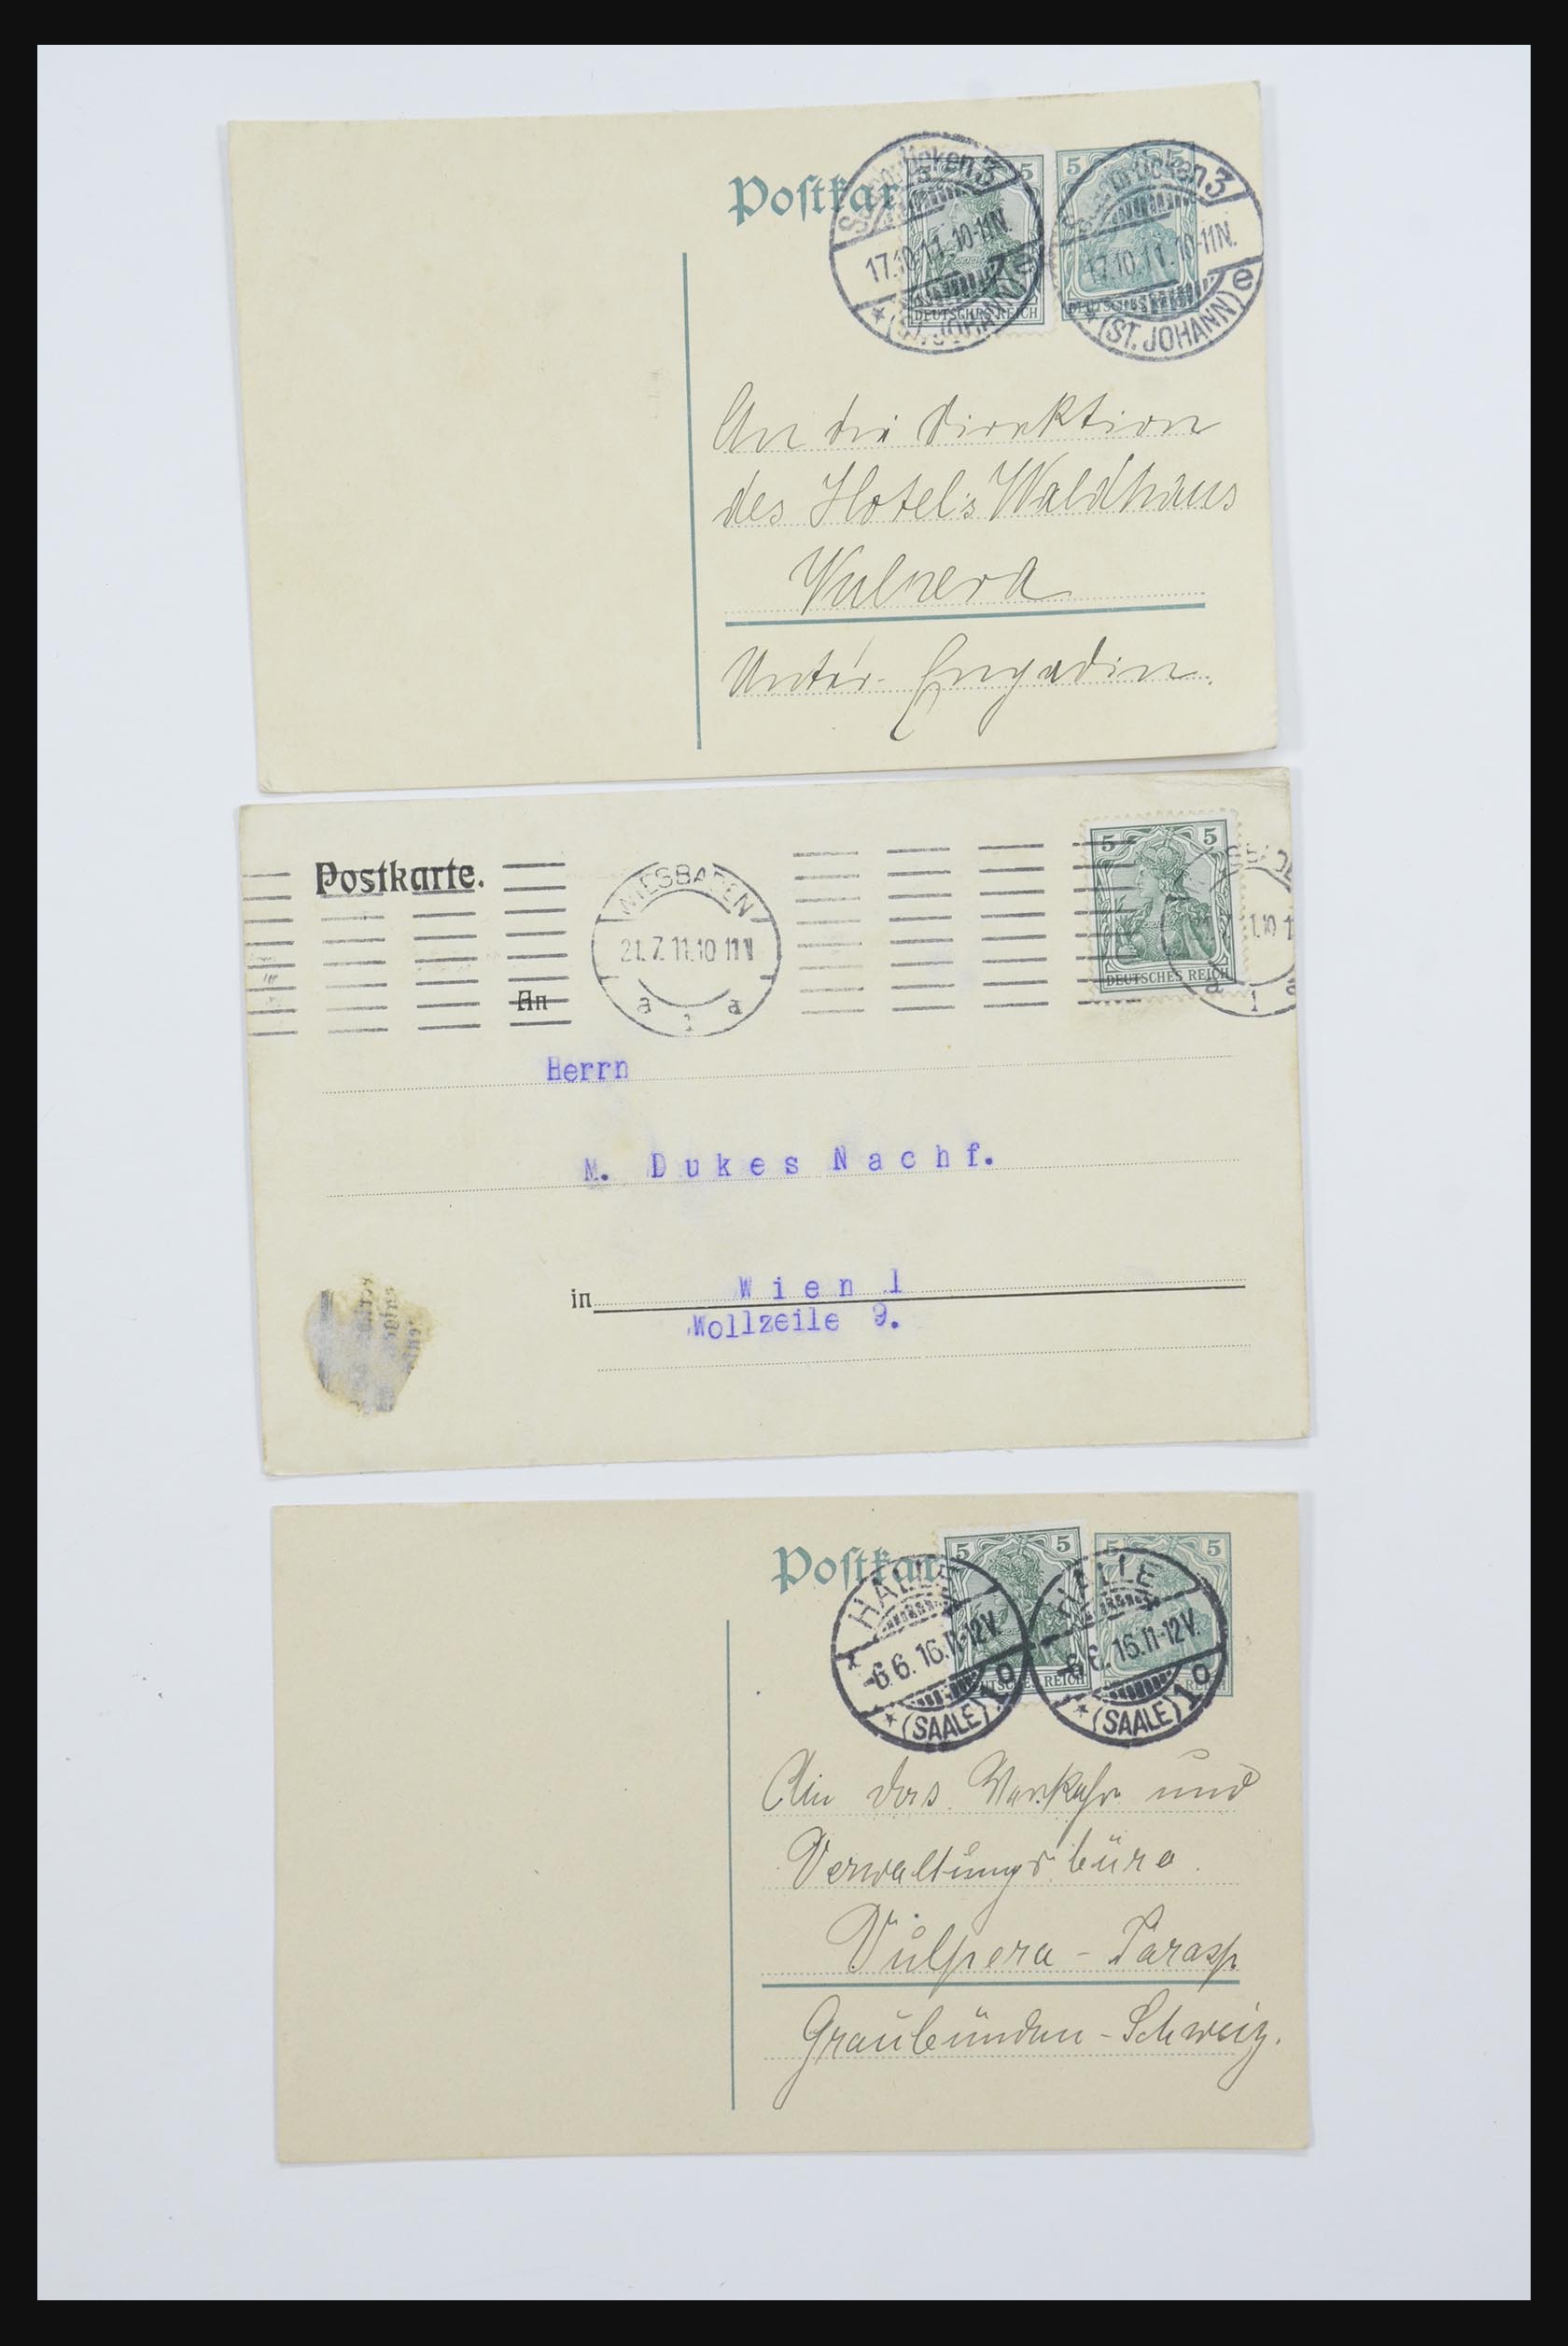 Postkar
5 5
Saarbrücken 3
17.10.11.10-11N.
* (ST. JOHANN) e
DEUTSCHES REICH
Saarbrücken 3
17.10.11.10-11N.
* (ST. JOHANN) e
DEUTSCHES
An die Direktion
des Hotel's Waldhaus
Vulpera
Unter-Engadin.
Postkarte.
WIESBADEN
21.7.11.10 11 V
a 1 a
5 5
DEUTSCHES REICH
a 1
An
Herrn
M. Dukes Nachf.
in Wien 1
Wollzeile 9.
Postkar
5 5
5 5
HALLE
6.6.16.11-12V.
* (SAALE) 1 o
REICH
HALLE
6.6.16.11-12V.
* (SAALE) 1 o
REICH
An das Verkehr und
Verwaltungsbüro.
Vulpera - Tarasp
Graubünden - Schweiz.